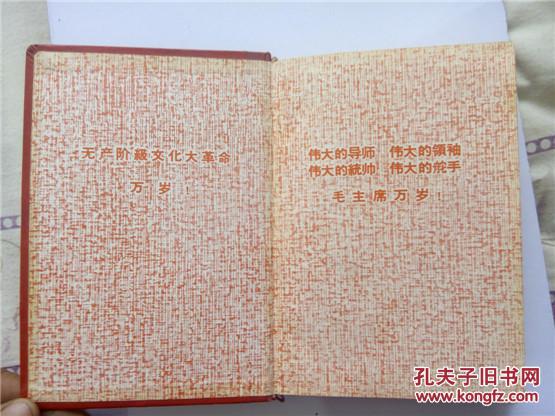 无产阶級文化大革命
万岁！
伟大的导师　伟大的領袖
伟大的統帅　伟大的舵手
毛主席万岁！
孔夫子旧书网
www.kongfz.com